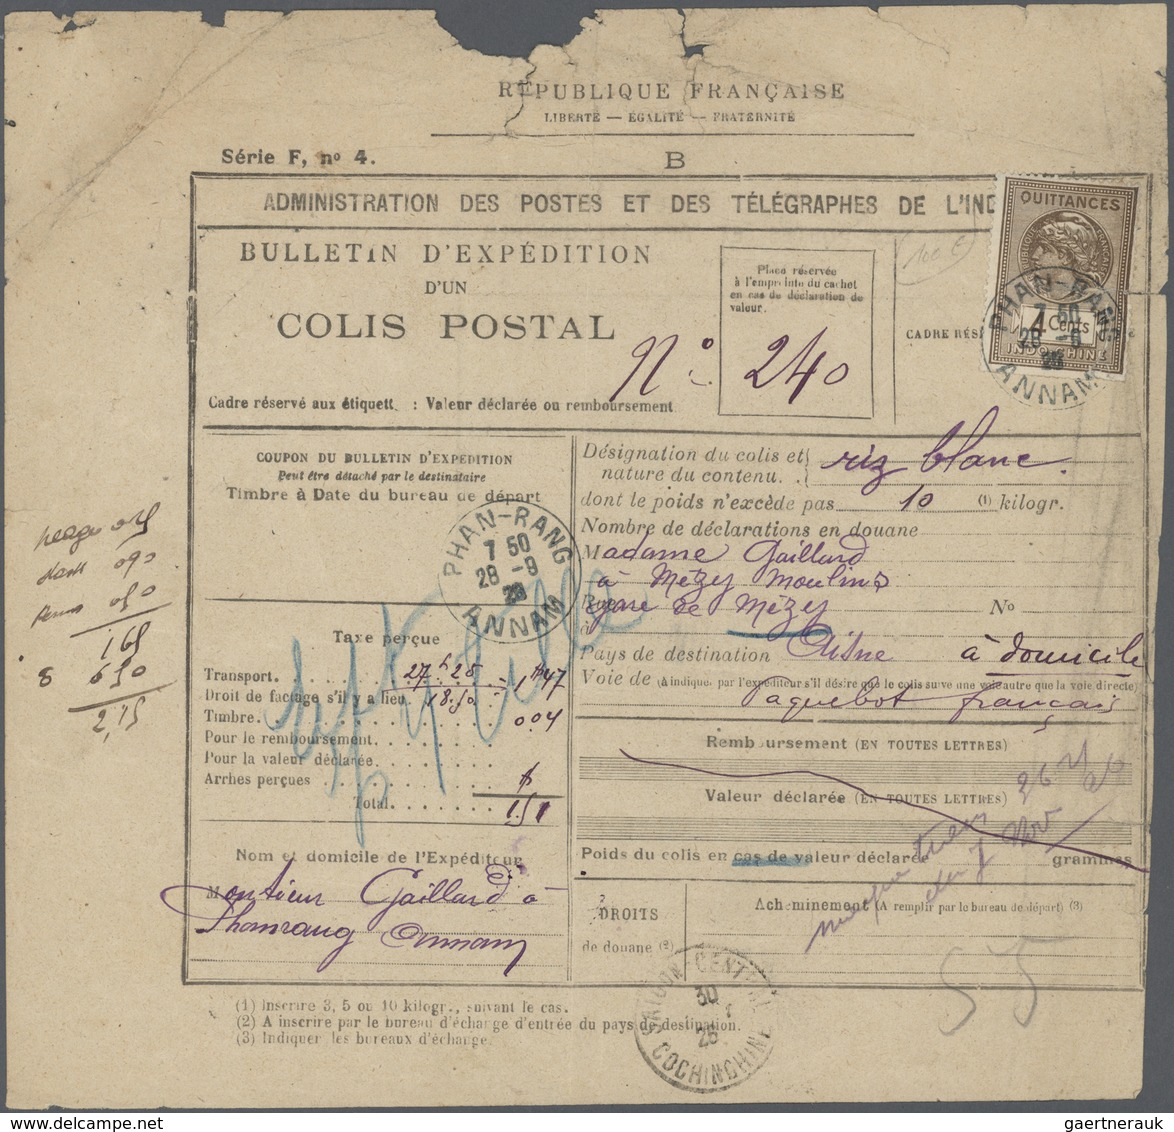 REPUBLIQUE FRANÇAISE
LIBERTÉ — EGALITÉ — FRATERNITÉ
Série F, nº 4.
B
ADMINISTRATION DES POSTES ET DES TÉLÉGRAPHES DE L'IND
QUITTANCES
REPUBLIQUE FRANÇAISE
4 Cents
INDOCHINE
PHAN-RANG
7 50
28 -9
26
ANNAM
BULLETIN D'EXPÉDITION
D'UN
COLIS POSTAL
Place réservée
à l'empreinte du cachet
en cas de déclaration de
valeur.
100 €
CADRE RÉS
Nº 240
Cadre réservé aux étiquett : Valeur déclarée ou remboursement
COUPON DU BULLETIN D'EXPEDITION
Peut être détaché par le destinataire
Timbre à Date du bureau de départ
PHAN-RANG
7 50
28 -9
26
ANNAM
Désignation du colis et
nature du contenu. riz blanc.
dont le poids n'excède pas 10 (1) kilogr.
Nombre de déclarations en douane
Madame Gaillard
à Mézy Moulins
Rue gare de Mézy Nº
à
Pays de destination Aisne à domicile
Voie de (A indiquer par l'expéditeur s'il désire que le colis suive une voie autre que la voie directe)
Paquebot français
Taxe perçue
Transport. 27 f 25 1 $ 47
Droit de factage s'il y a lieu. 18.50
Timbre. 0 04
Pour le remboursement.
Pour la valeur déclarée.
Arrhes perçues $
Total. 1.51
090
050
165
650
2,15
Remboursement (EN TOUTES LETTRES)
Valeur déclarée (EN TOUTES LETTRES)
Poids du colis en cas de valeur déclarée grammes
Nov 26
Nom et domicile de l'Expéditeur
Monsieur Gaillard à
Phanrang Annam
DROITS
de douane (2)
Acheminement (A remplir par le bureau de départ) (3)
55
SAIGON-CENTRAL
30
26
COCHINCHINE
(1) Inscrire 3, 5 ou 10 kilogr., suivant le cas.
(2) A inscrire par le bureau d'échange d'entrée du pays de destination.
(3) Indiquer les bureaux d'échange.
gaertnerauk